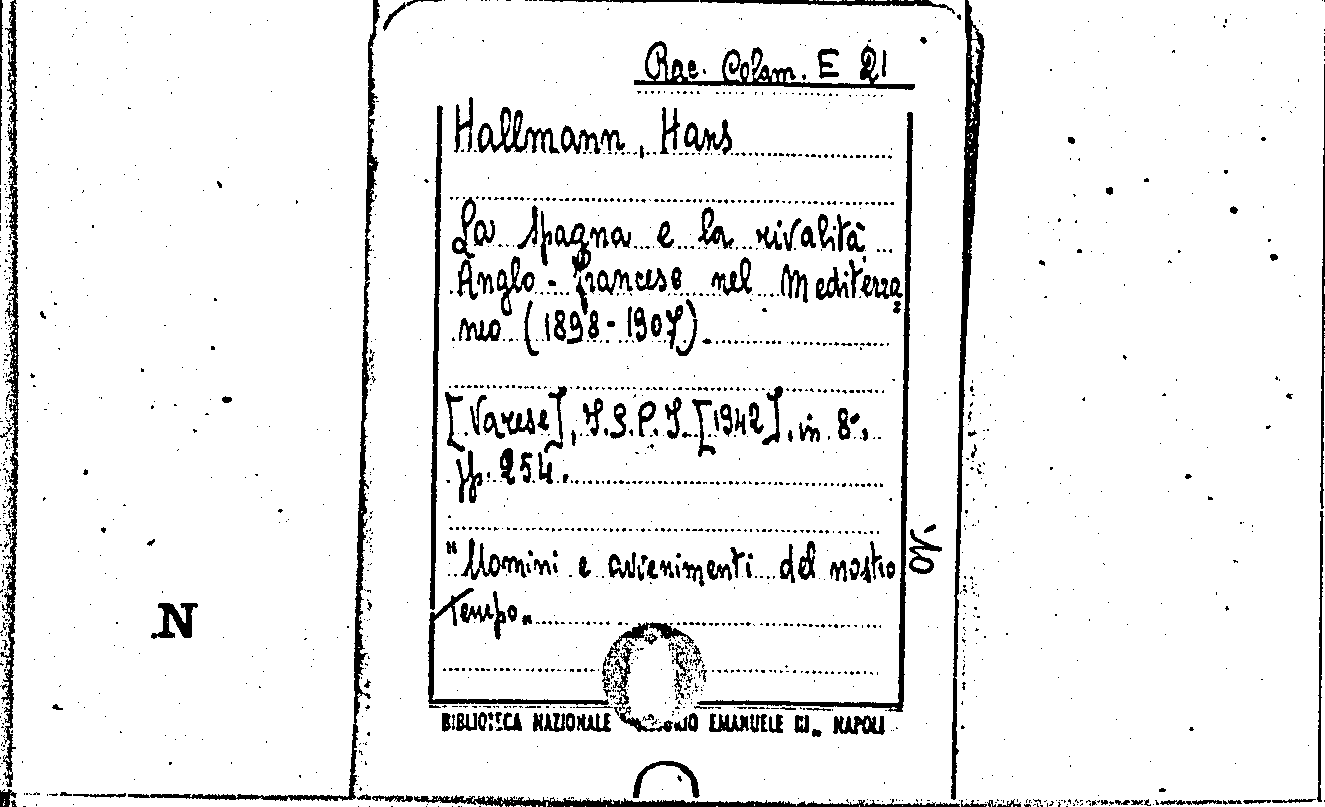 Rac. Colam. E 21
Hallmann, Hans
La Spagna e la rivalità
Anglo-francese nel Mediterra
neo (1898-1907).
[Varese], I.S.P.I. [1942], in 8°,
pp. 254.
"Uomini e avvenimenti del nostro
tempo„
N
BIBLIOTECA NAZIONALE EMANUELE III„ NAPOLI